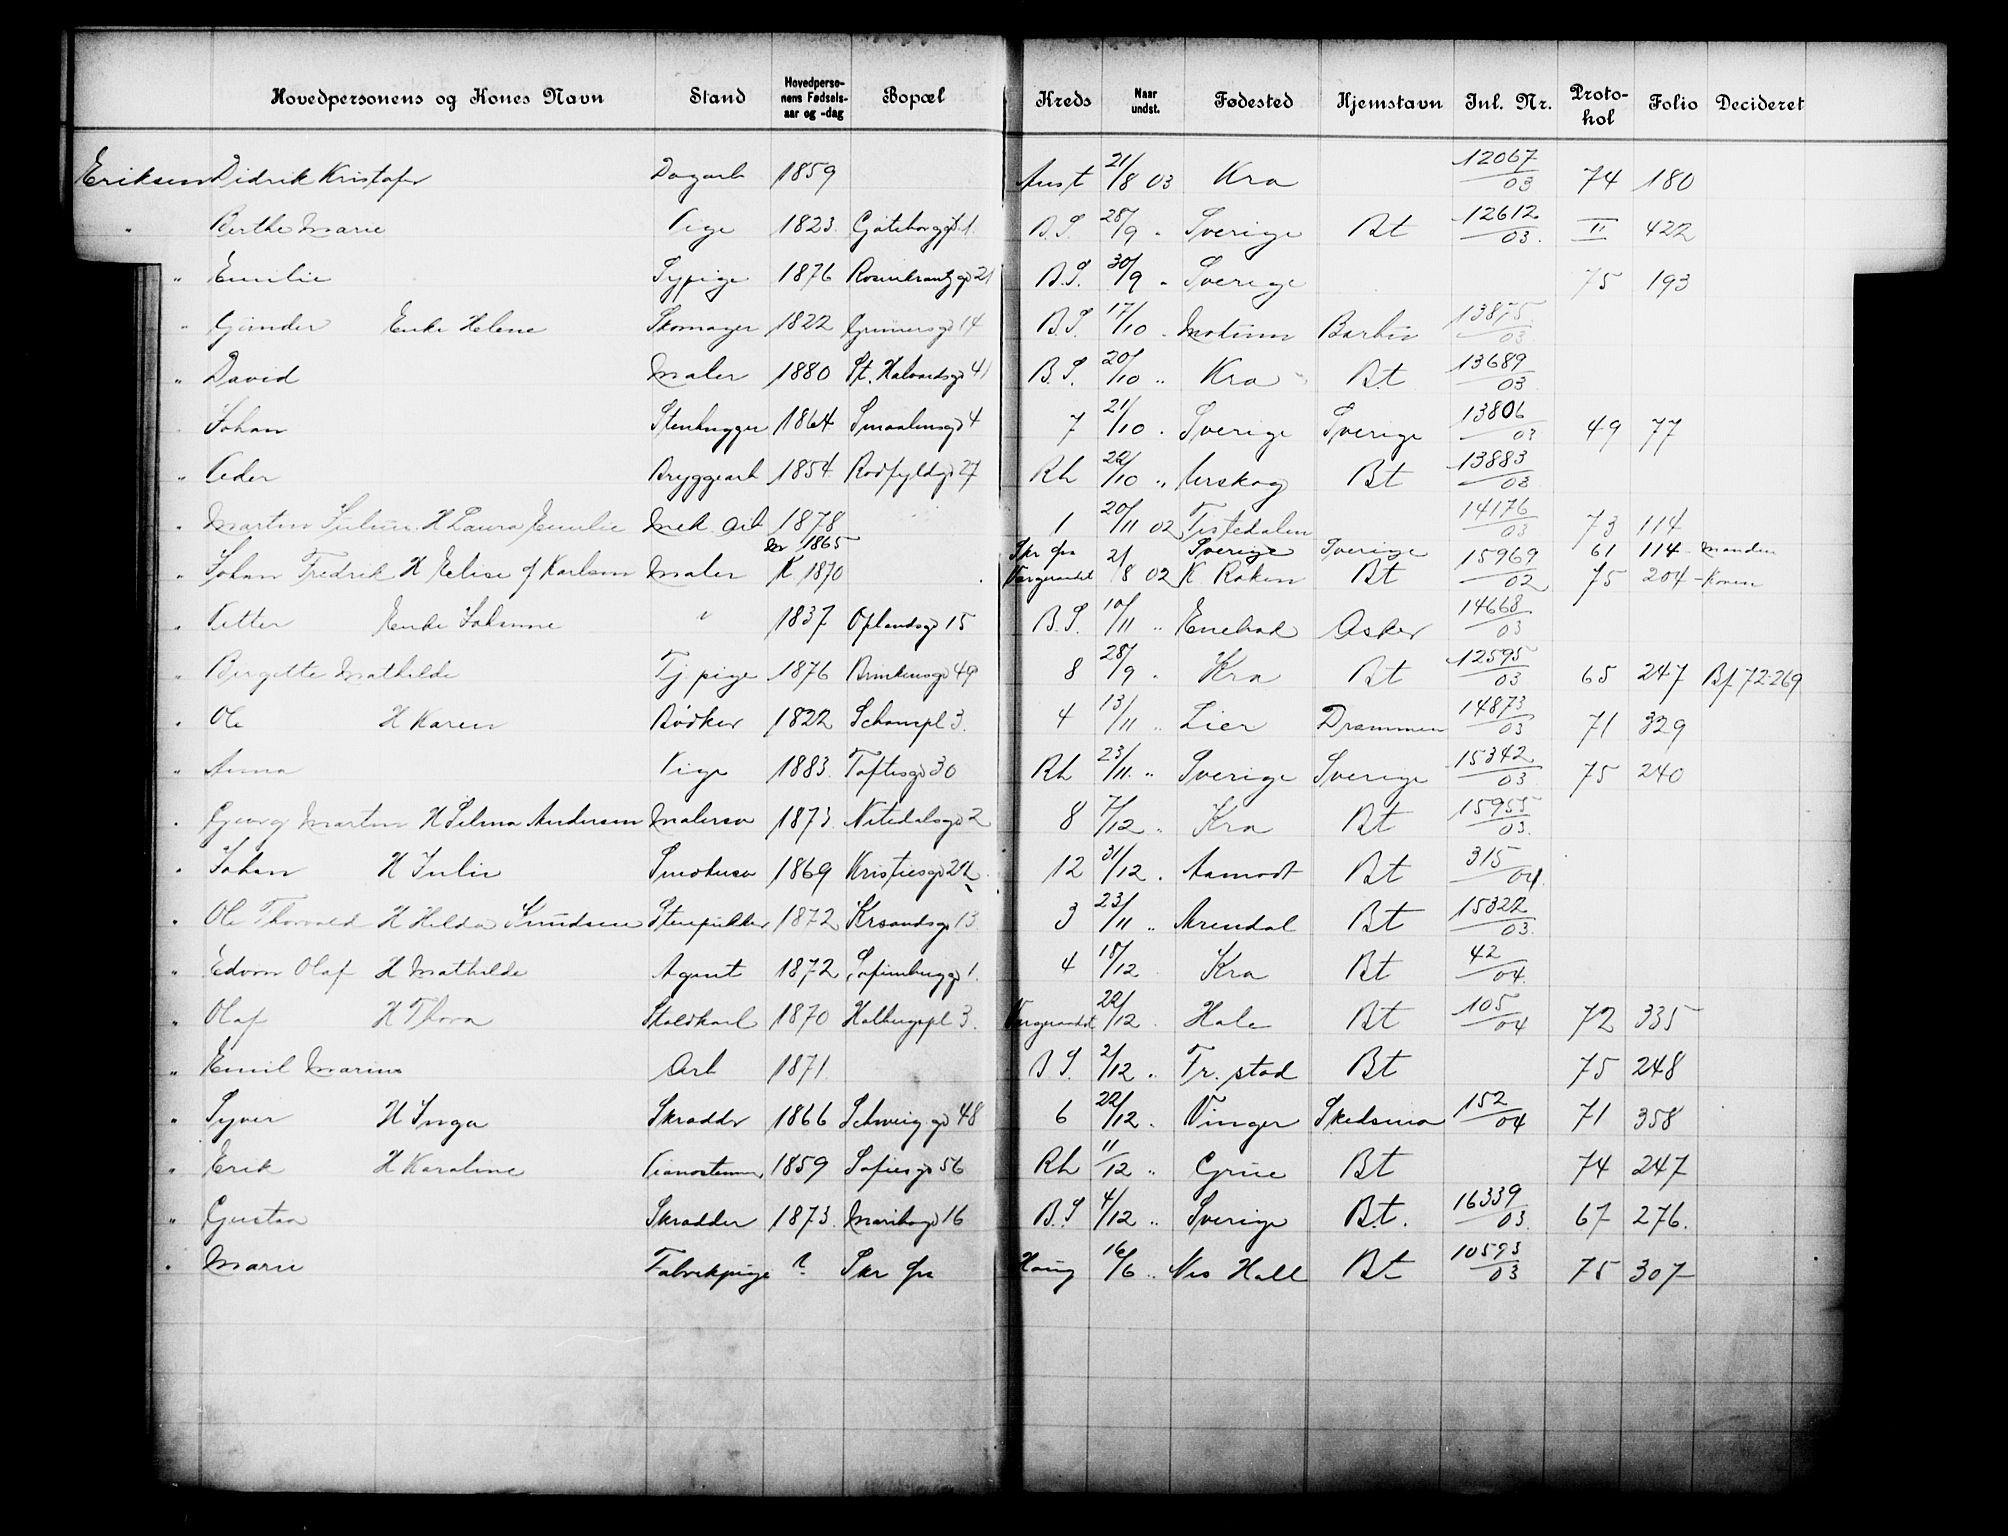 Hovedpersonens og Kones Navn Stand Hovedpersonens Fødselsaar og -dag Bopæl Kreds Naar undst. Fødested Hjemstavn Inl. Nr. Protokol Folio Decideret
Eriksen Didrik Kristofer Dagarb 1859 Aust 21/8 03 Kra 12067/03 74 180
" Berthe Marie Pige 1823 Göteborggd 1. B.S. 28/9 " Sverige Bt 12612/03. II 422
" Emilie Sypige 1876 Rosenkrantzgd 21 B.S. 30/9 " Sverige 75 193
" Gunder Enke Helene Skomager 1822 Grünersgd 14 B.S. 17/10 " Modum 13875/03
" David Maler 1880 St. Halvardsgd 41 B.S. 20/10 " Kra Bt 13689/03
" Johan Stenhugger 1864 Smaalensgd 4 7 21/10 " Sverige Sverige 13806/03 49 77
" Peder Bryggearb 1854 Rodfyldgd 27 Rh 22/10 " Urskog Bt 13883/03
" Martin Julius H Laura Emilie Mek. arb 1878 1 20/11 02 Tistedalen 14176/03 73 114
" Johan Fredrik H Elise f Karlsen Maler M 1865 K 1870 Skr fra Vergeraadet 21/8 02 Sverige K Raken Sverige Bt 15969/02 61 114 - Manden 75 204 - Konen
" Petter Enke Johanne " 1837 Oplandsgd 15 B.S. 10/11 " Enebak Asker 14668/03
" Birgitte Mathilde Tj. pige 1876 Brinkensgd 49 8 28/9 " Kra Bt 12595/03 65 247 Bf 72-269
" Ole H Karen Bødker 1822 Schouspl 3. 4 13/11 " Lier Drammen 14873/03 71 329
" Anna Pige 1883 Toftesgd 30 Rh 23/11 " Sverige Sverige 15342/03 75 240
" Georg Martin H Selma Andersen Malersv 1873 Nitedalsgd 2 8 7/12 " Kra Bt 15955/03.
" Johan H Julie Smedesv 1869 Kristiesgd 22 12 31/12 " Aamodt Bt 315/04.
" Ole Thorvald H Hilda Knudsen Stenpikker 1872 Krsandsgd 13 3 23/11 " Arendal Bt 15322/03.
" Edvin Olaf H Mathilde Agent 1872 Sofienberggd 1. 4 18/12 Kra Bt 42/04.
" Olaf H Thora Staldkarl 1870 Halbergspl 3. Vergeraadet 22/12 Hole Bt 105/04 72 335
" Emil Marius Arb 1871. B S. 2/12 " Fr. stad Bt 75 248
" Syver H Inga Skrædder 1866 Schweig.gd 48 6 22/12 " Vinger Skedsmo 152/04 71 358
" Erik H Karoline Pianostemmer 1859 Sofiesgd 56 Rh 11/12 " Grue Bt 74 247
" Gustav Skrædder 1873. Maribogd 16 B.S 4/12 " Sverige B.t. 16339/03. 67 276.
" Marie Fabrikpige ? Skr fra Haug 16/6 " Nes Hall Bt 10593/03 75 307